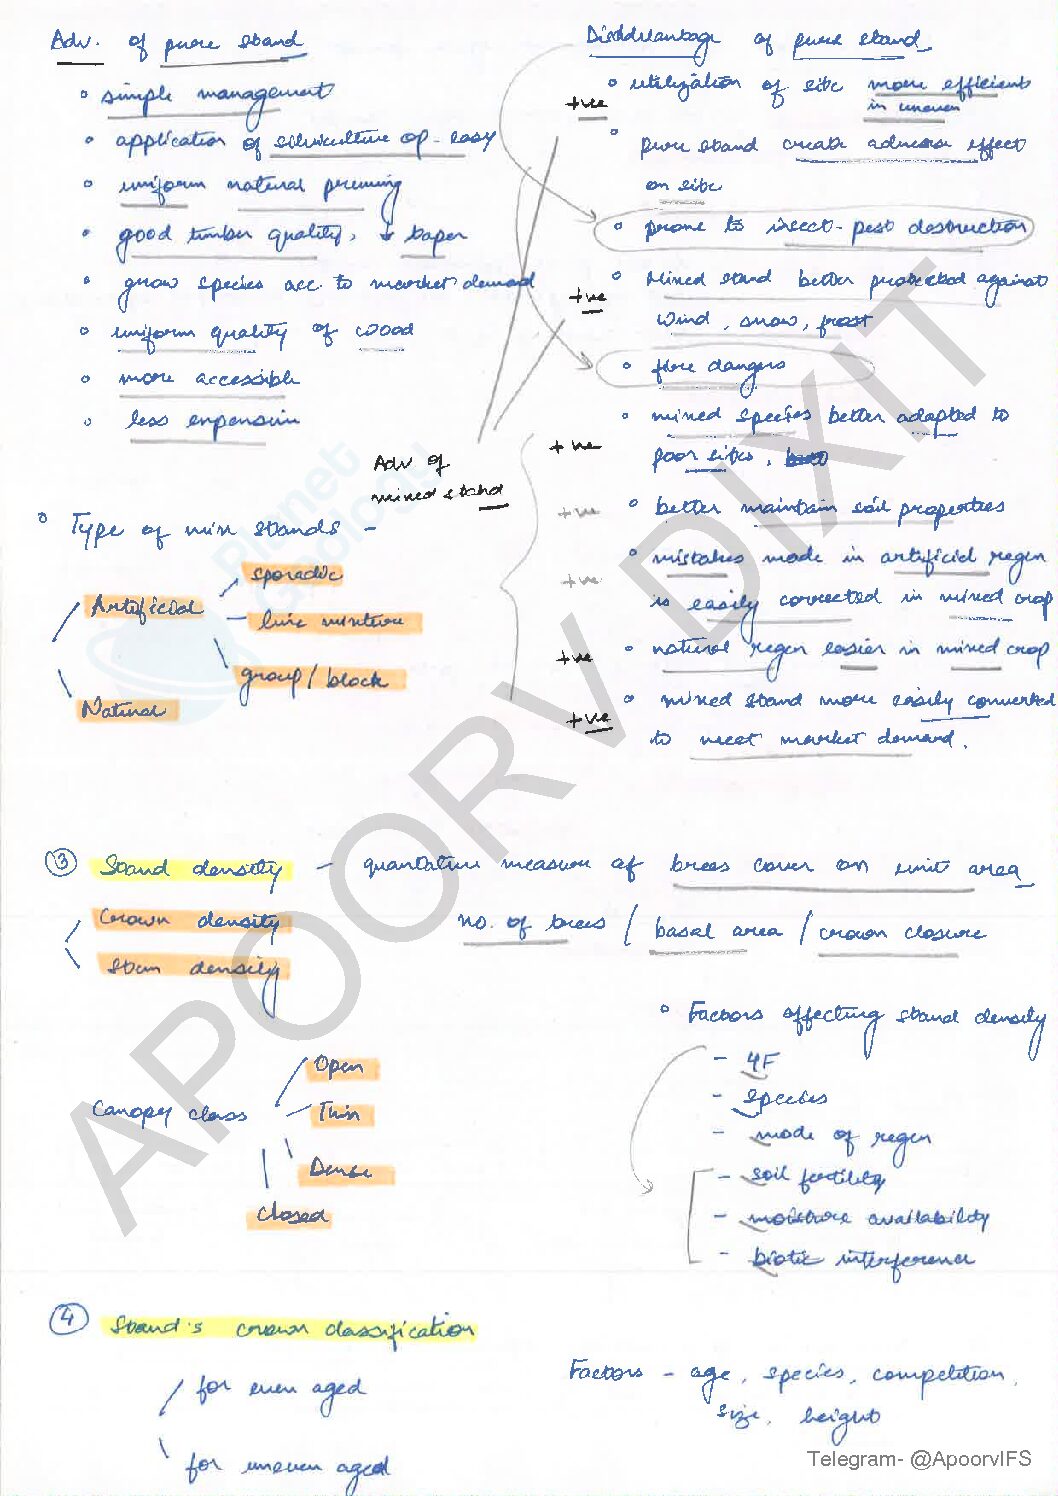 Adv. of pure stand
° simple management
° application of silviculture op - easy
° uniform natural pruning
° good timber quality, ↓ taper
° grow species acc to market demand
° uniform quality of wood
° more accessible
° less expensive
Adv of
mixed stand
Disadvantage of pure stand
° utilization of site more efficient
in uneven
+ve
° pure stand create adverse effect
on site
° prone to insect-pest destruction
+ve
° Mixed stand better protected against
wind, snow, frost
° fire dangers
+ve
° mixed species better adapted to
poor sites,
+ve
° better maintain soil properties
+ve
° mistakes made in artificial regen
is easily corrected in mixed crop
+ve
° natural regen easier in mixed crop
+ve
° mixed stand more easily converted
to meet market demand.
° Type of mix stands -
Artificial
sporadic
line mixture
group/block
Natural
③ Stand density - quantative measure of trees cover on unit area
no. of trees / basal area / crown closure
Crown density
Stem density
Canopy class
Open
Thin
Dense
Closed
° Factors affecting stand density
- 4F
- species
- mode of regen
- soil fertility
- moisture availability
- biotic interference
④ Stand's crown classification
for even aged
for uneven aged
Factors - age, species, competition,
size, height
Planet
Geology
APOORV DIXIT
Telegram- @ApoorvIFS